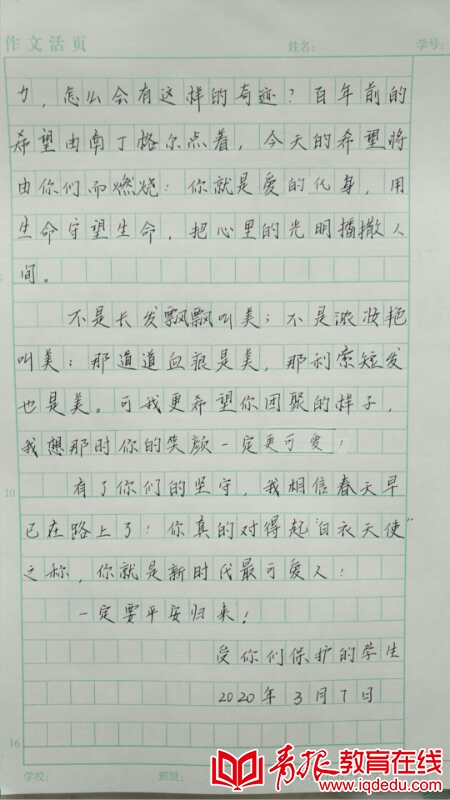 作文活页 姓名: 学号:
力，怎么会有这样的奇迹？百年前的
希望由南丁格尔点着，今天的希望将
由你们而燃烧！你就是爱的化身，用
生命守望生命，把心里的光明播撒人
间。
不是长发飘飘叫美；不是浓妆艳
叫美；那道道血痕是美，那利索短发
也是美。可我更希望你团聚的样子，
我想那时你的笑颜一定更可爱！
10
有了你们的坚守，我相信春天早
已在路上了！你真的对得起“白衣天使”
之称，你就是新时代最可爱人！
一定要平安归来！
受你们保护的学生
2020年3月7日
16
学校: 班级:
青报教育在线
www.iqdedu.com